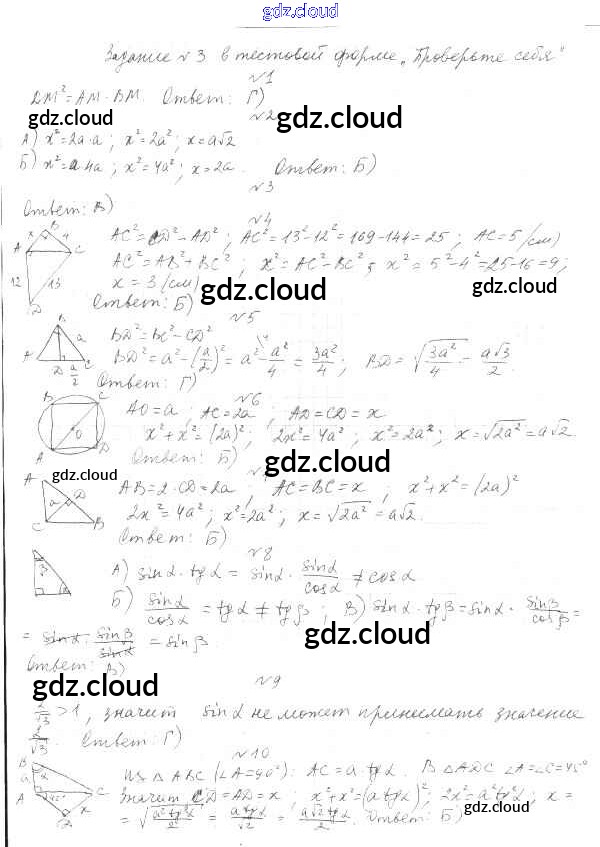 gdz.cloud
Задание №3 в тестовой форме „Проверьте себя"
№1
DM² = AM · BM. Ответ: Г)
gdz.cloud
№2 gdz.cloud
А) x² = 2a · a; x² = 2a²; x = a√2
Б) x² = a · 4a; x² = 4a²; x = 2a. Ответ: Б)
№3
Ответ: В)
№4
AC² = CD² − AD²; AC² = 13² − 12² = 169 − 144 = 25; AC = 5 (см)
AC² = AB² + BC²; x² = AC² − BC²; x² = 5² − 4² = 25 − 16 = 9;
x = 3 (см) gdz.cloud gdz.cloud
Ответ: Б)
A B C D x 4 12 13
№5
BD² = BC² − CD²
BD² = a² − (a/2)² = a² − a²/4 = 3a²/4; BD = √(3a²/4) = a√3/2.
Ответ: Г)
A D C a a/2
№6
AO = a; AC = 2a; AD = CD = x
x² + x² = (2a)²; 2x² = 4a²; x² = 2a²; x = √2a² = a√2.
Ответ: Б) gdz.cloud
B C O A D
gdz.cloud
AB = 2 · CD = 2a; AC = BC = x; x² + x² = (2a)²
2x² = 4a²; x² = 2a²; x = √2a² = a√2.
Ответ: Б)
A D a C B
gdz.cloud
№8
А) sinα · tgα = sinα · sinα/cosα ≠ cosα
Б) sinα/cosα = tgα ≠ tgβ; В) sinα · tgβ = sinα · sinβ/cosβ =
= sinα · sinβ/sinα = sinβ
β α
gdz.cloud
Ответ: В)
gdz.cloud №9
2/√3 > 1, значит sinα не может принимать значение
2/√3. Ответ: Г)
gdz.cloud
№10
Из △ABC (∠A = 90°): AC = a · tgα. В △ADC ∠A = ∠C = 45°
Значит CD = AD = x; x² + x² = (a tgα)²; 2x² = a² tg²α; x =
= √(a² tg²α/2) = a tgα/√2 = a√2 tgα/2. Ответ: Б)
B a α A 45° C x D
gdz.cloud